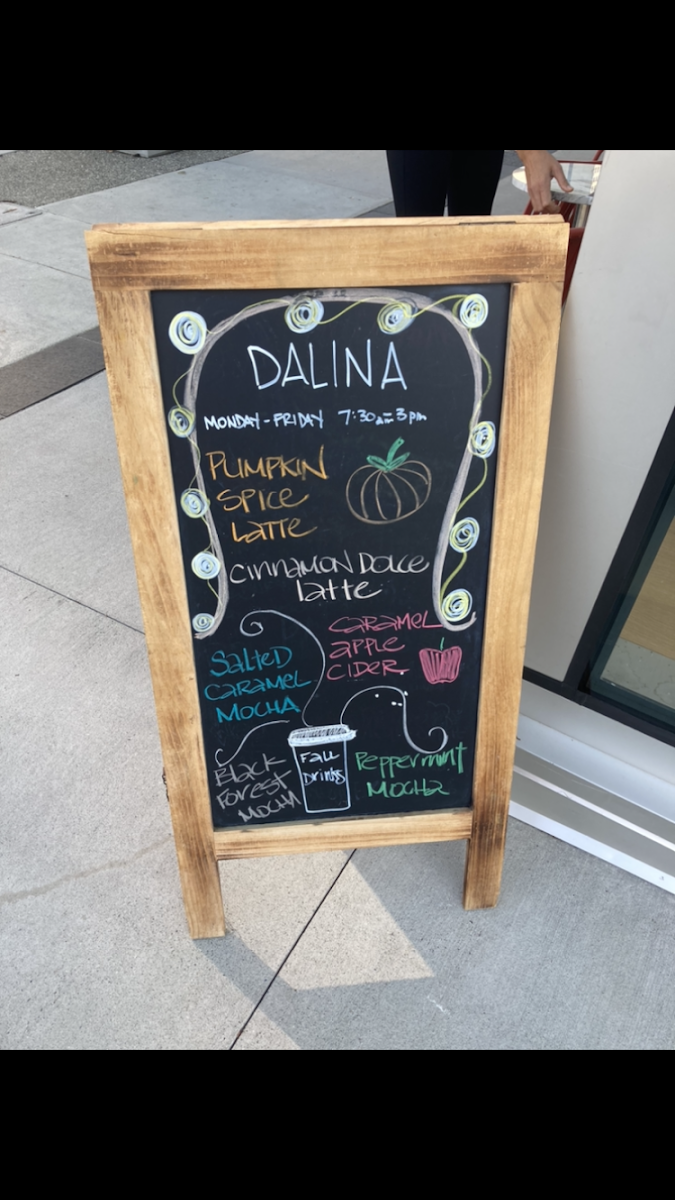 DALINA
MONDAY - FRIDAY 7:30am - 3pm
PUMPKIN
SPICE
LATTE
CINNAMON DOLCE
latte
CARAMEL
APPLE
CIDER
SALTED
CARAMEL
MOCHA
BLACK
FOREST
MOCHA
FALL
Drinks
Peppermint
MOCHA